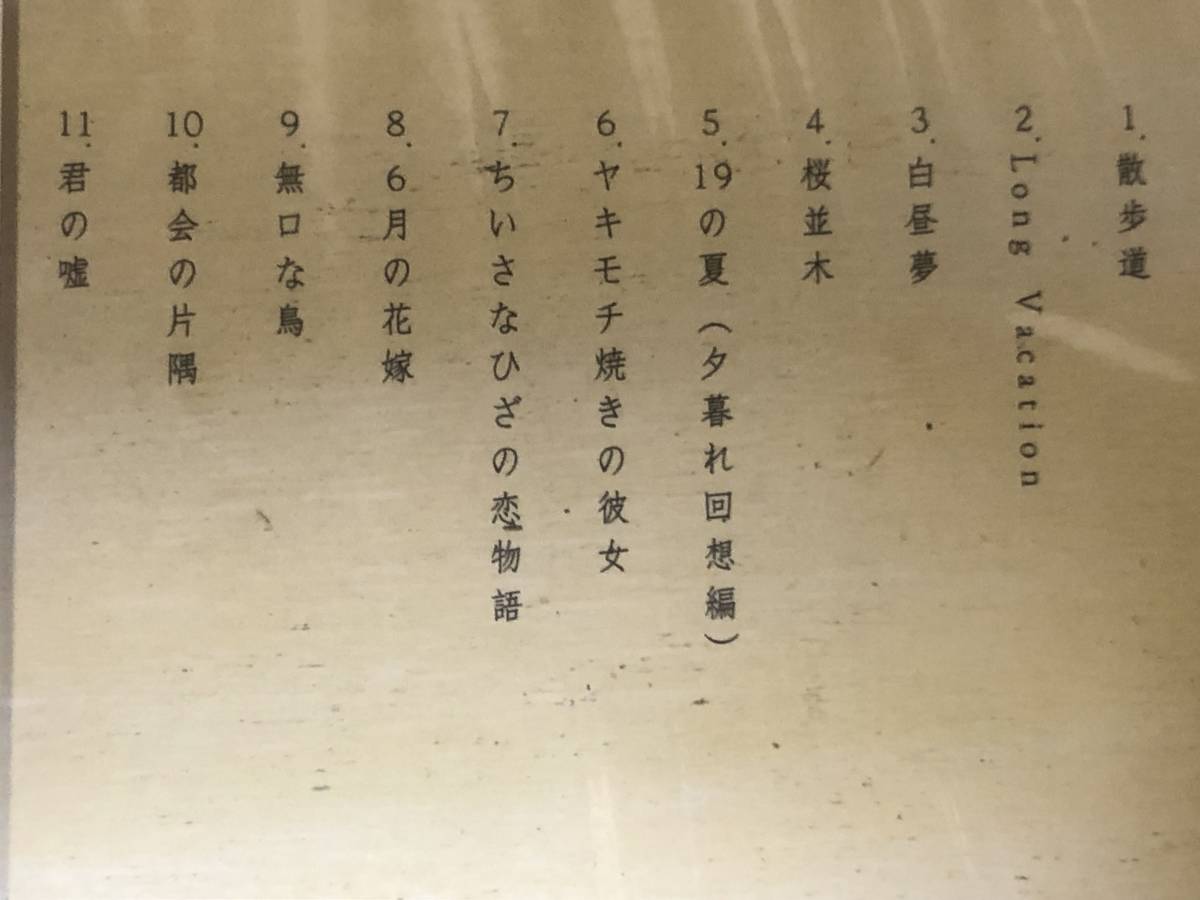 1. 散歩道
2. Long Vacation
3. 白昼夢
4. 桜並木
5. 19の夏(夕暮れ回想編)
6. ヤキモチ焼きの彼女
7. ちいさなひざの恋物語
8. 6月の花嫁
9. 無口な鳥
10. 都会の片隅
11. 君の嘘